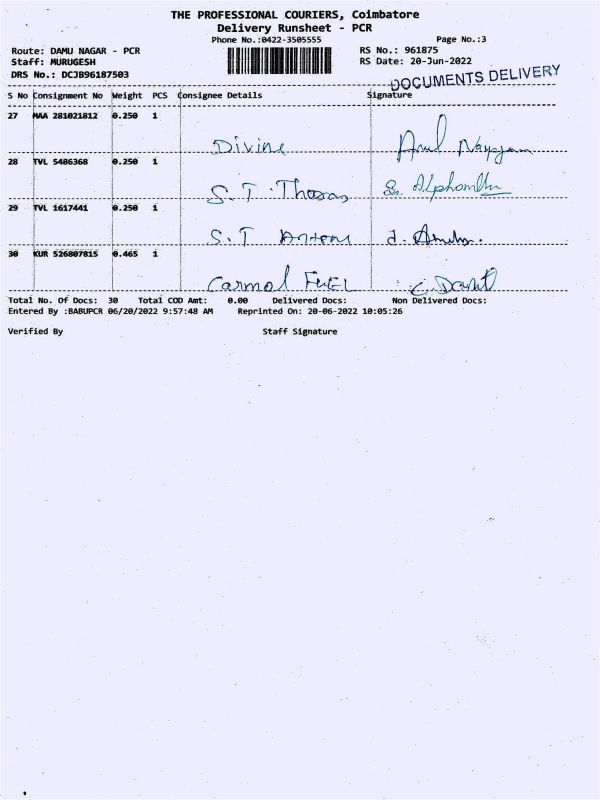 THE PROFESSIONAL COURIERS, Coimbatore
Delivery Runsheet - PCR
Phone No.:0422-3505555 Page No.:3
Route: DAMU NAGAR - PCR RS No.: 961875
Staff: MURUGESH RS Date: 20-Jun-2022
DRS No.: DCJB96187503
DOCUMENTS DELIVERY
S No Consignment No Weight PCS Consignee Details Signature
27 MAA 281021812 0.250 1
Divine Arul
28 TVL 5486368 0.250 1
S. T. Thomas
29 TVL 1617441 0.250 1
S. T Antony
30 KUR 526807815 0.465 1
Carmel FUEL
Total No. Of Docs: 30 Total COD Amt: 0.00 Delivered Docs: Non Delivered Docs:
Entered By :BABUPCR 06/20/2022 9:57:48 AM Reprinted On: 20-06-2022 10:05:26
Verified By Staff Signature